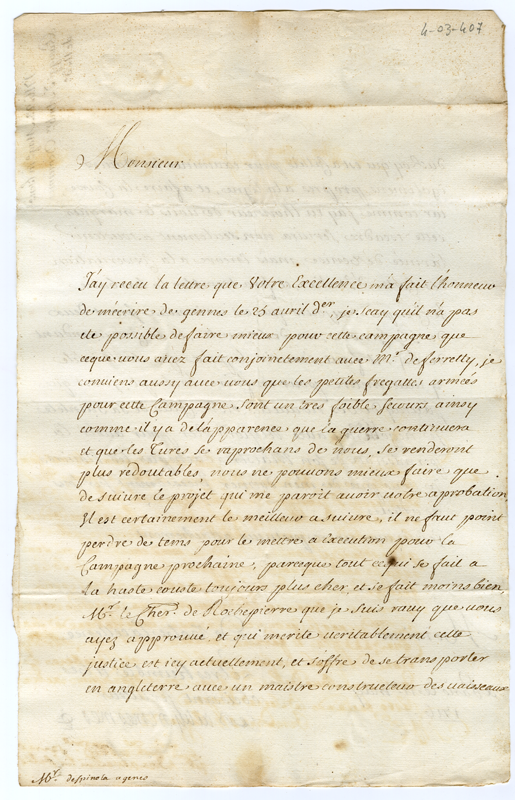 4-03-407
Monsieur
J'ay receu la lettre que Votre Excellence m'a fait l'honneur
de m'écrire de gennes le 25 avril der, je scay qu'il n'a pas
ete possible de faire mieux pour cette campagne que
ceque vous avez fait conjoinctement avec Mr. de ferretty, je
conviens aussy avec vous que les petites fregattes armées
pour cette Campagne sont un tres foible secours, ainsy
comme il y a de l'apparence que la guerre continuera
et que les Turcs se raprochans de nous, se renderont
plus redoutables, nous ne pouvons mieux faire que
de suivre le projet qui me paroit avoir votre aprobation
Il est certainement le meilleur a suivre, il ne faut point
perdre de tems pour le mettre a execution pour la
Campagne prochaine, parceque tout ce qui se fait a
la haste couste toujours plus cher, et se fait moins bien,
Mr. le Cher. de Rochepierre que je suis ravy que vous
ayez approuvé et qui merite veritablement cette
justice est icy actuellement, et s'offre de se transporter
en angleterre avec un maistre constructeur des vaisseaux
Mr. de spinola a genes